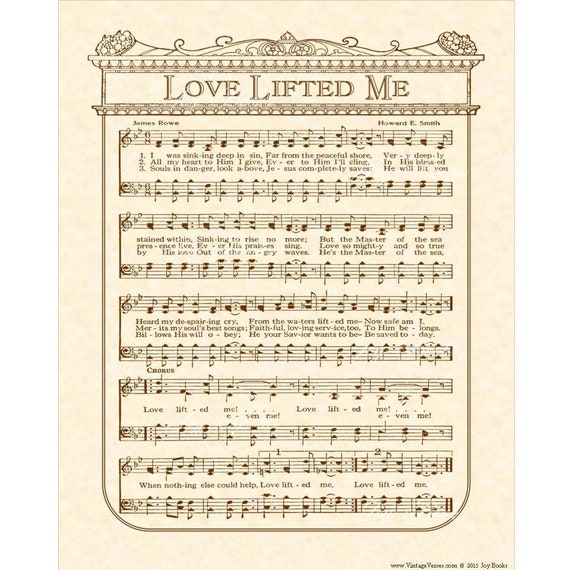 LOVE LIFTED ME
James Rowe Howard E. Smith
1. I was sink-ing deep in sin, Far from the peaceful shore, Ver-y deep-ly
2. All my heart to Him I give, Ev-er to Him I'll cling, In His bless-ed
3. Souls in dan-ger, look a-bove, Je-sus com-plete-ly saves: He will lift you
stained within, Sink-ing to rise no more; But the Mas-ter of the sea
pres-ence live, Ev-er His prais-es sing. Love so might-y and so true
by His love Out of the an-gry waves. He's the Mas-ter of the sea,
Heard my de-spair-ing cry, From the wa-ters lift-ed me-Now safe am I.
Mer-its my soul's best songs; Faith-ful, lov-ing serv-ice, too, To Him be-longs.
Bil-lows His will o-bey; He your Sav-ior wants to be-Be saved to-day,
CHORUS
Love lift-ed me! . . . . Love lift-ed me! . . . .
e-ven me! e-ven me!
1 2
When noth-ing else could help, Love lift-ed me, Love lift-ed me.
www.VintageVerses.com © 2015 Joy Books